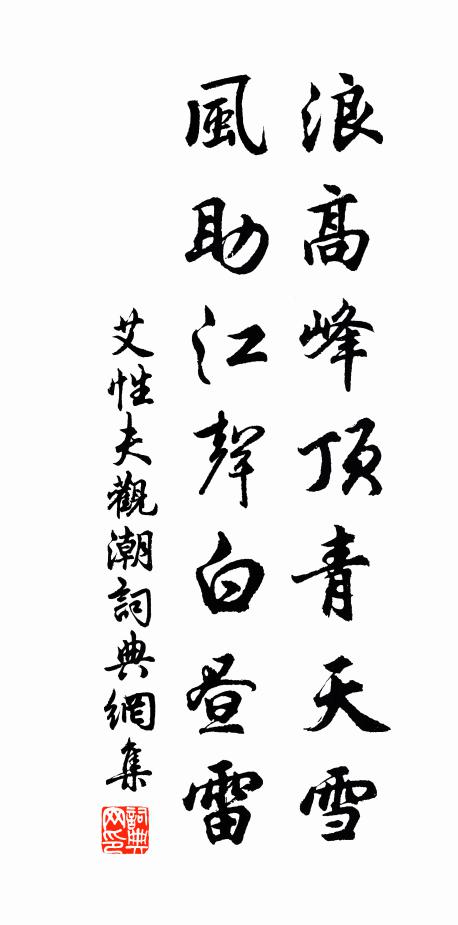 浪高峰頂青天雪
風助江聲白昼雷
艾性夫觀潮詞典網集
詞典网印